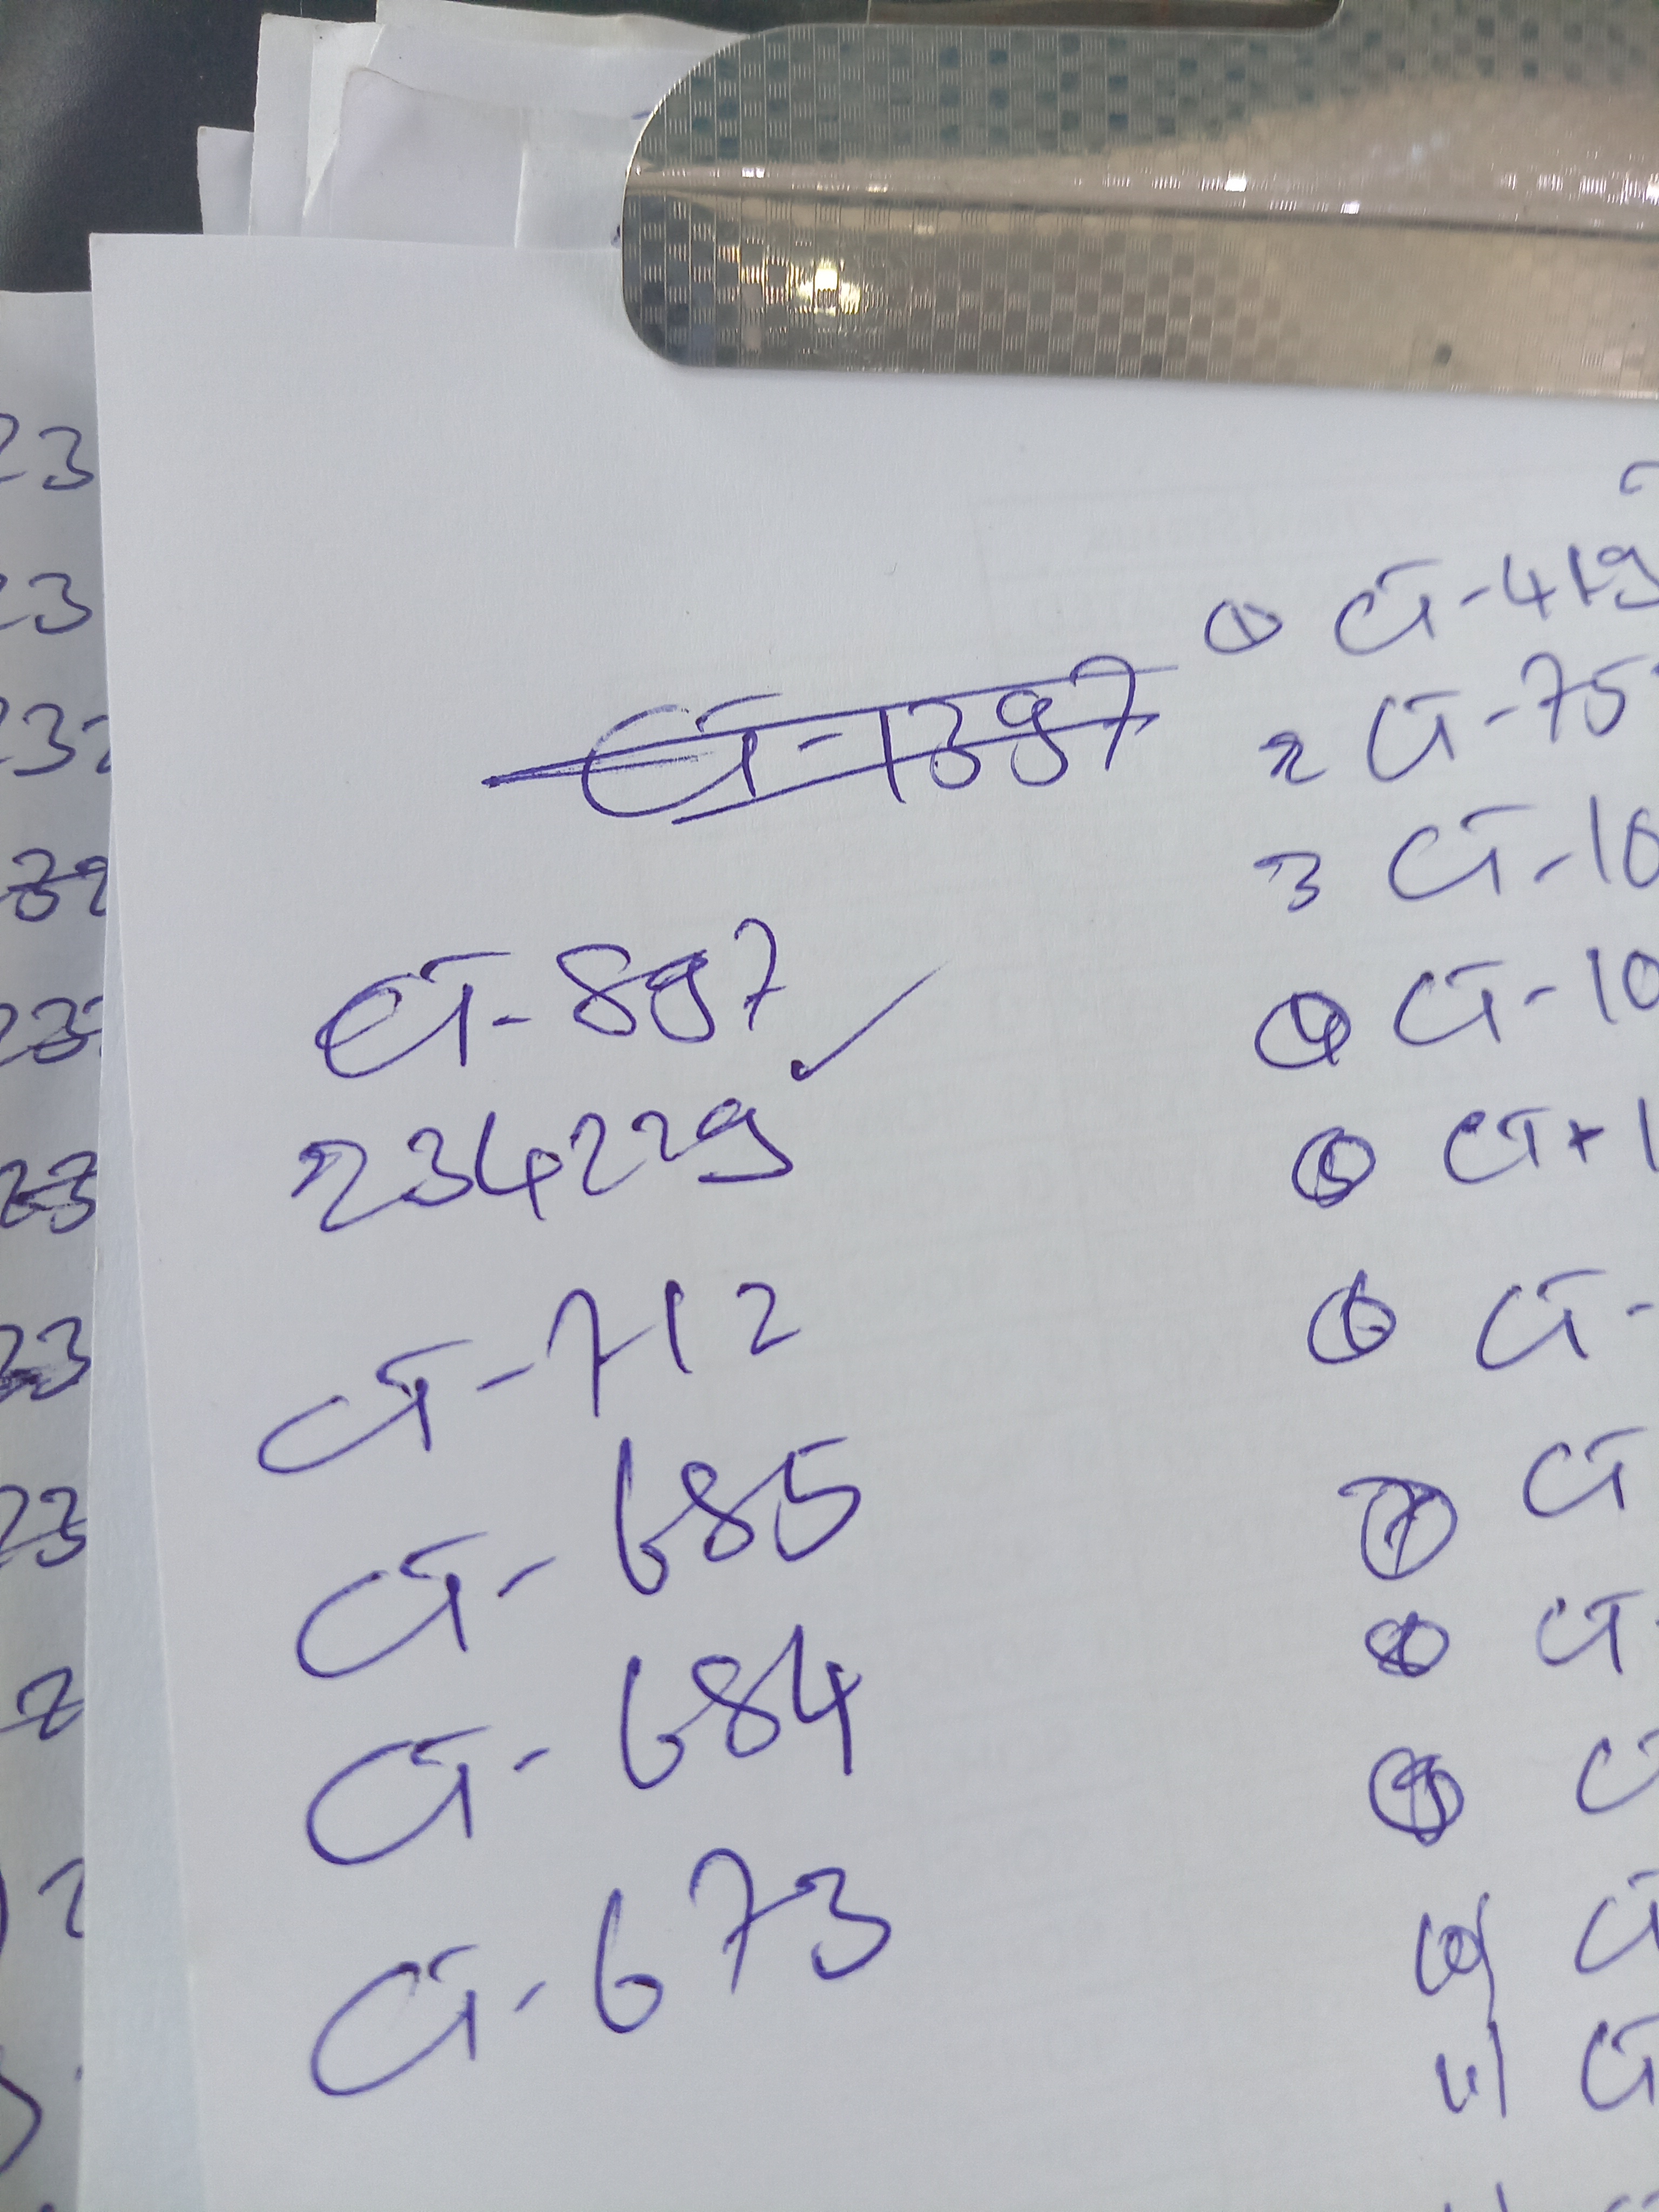 CT-1397
CT-897
234229
CT-712
CT-685
CT-684
CT-673
① CT-419
2 CT-75
3 CT-10
④ CT-10
⑤ CT+1
⑥ CT-
⑦ CT
⑧ CT-
⑨ C
10) CT
11) CT
23
23
232
232
23
23
23
23
2
2